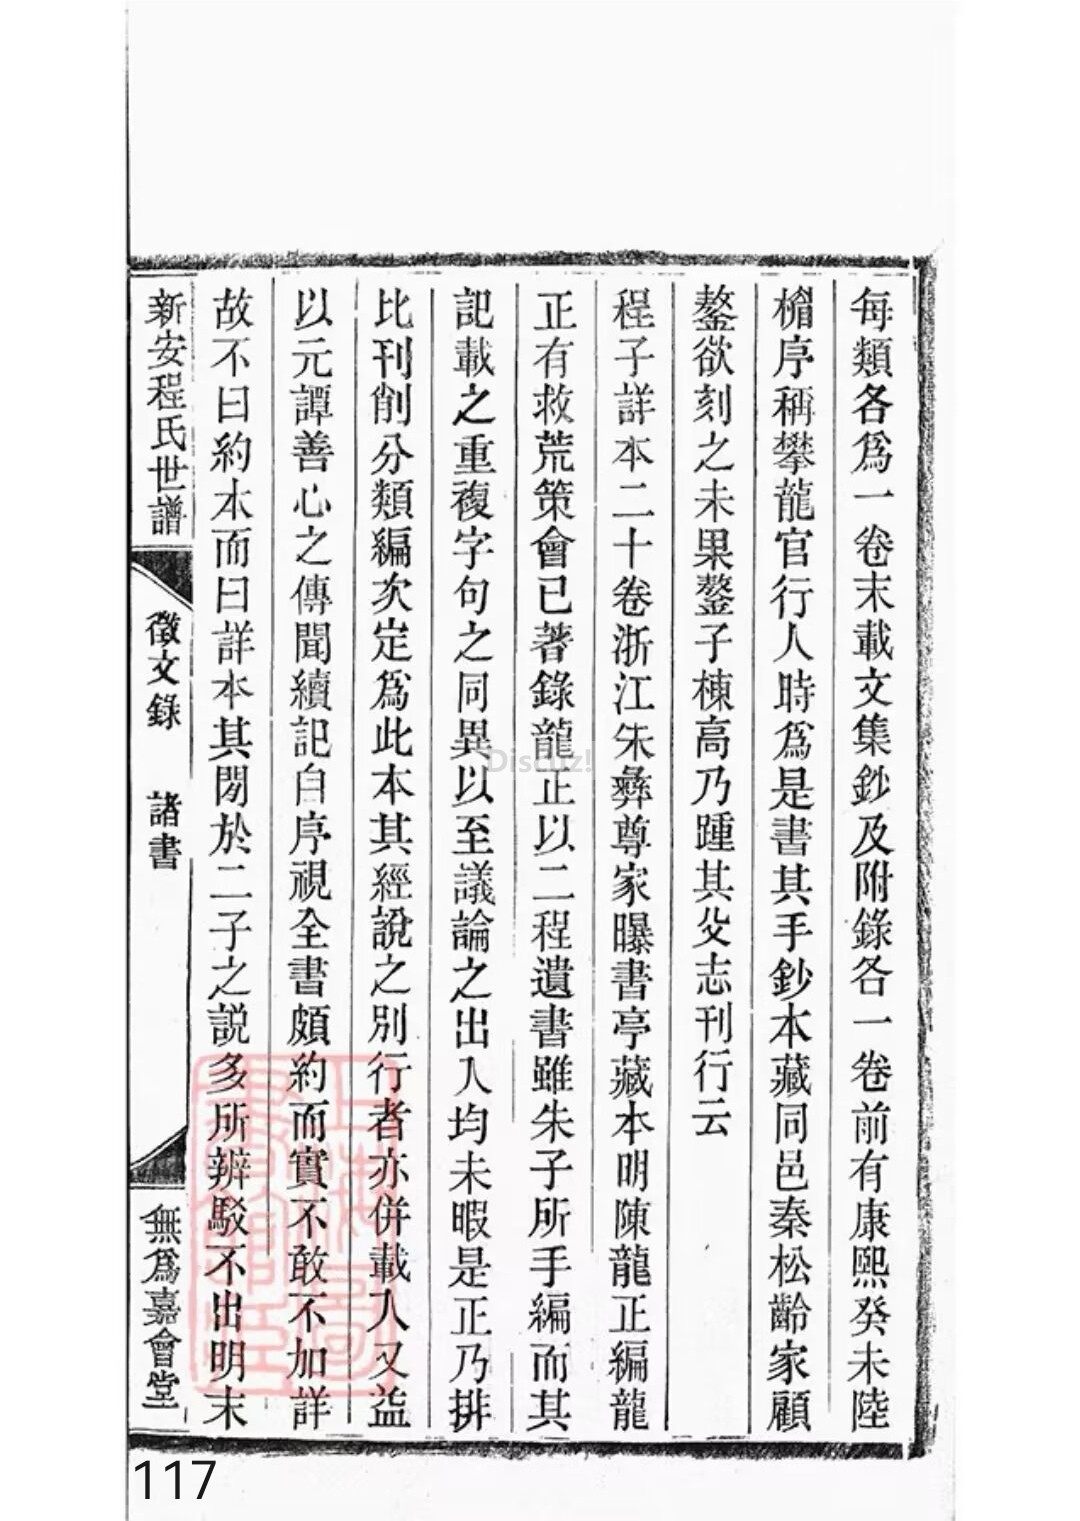 每類各爲一卷末載文集鈔及附錄各一卷前有康熙癸未陸
楣序稱攀龍官行人時爲是書其手鈔本藏同邑秦松齡家顧
鏊欲刻之未果鏊子棟高乃踵其父志刊行云
程子詳本二十卷浙江朱彝尊家曝書亭藏本明陳龍正編龍
正有救荒策會已著錄龍正以二程遺書雖朱子所手編而其
記載之重複字句之同異以至議論之出入均未暇是正乃排
比刊削分類編次定爲此本其經說之別行者亦併載入又益
以元譚善心之傳聞續記自序視全書頗約而實不敢不加詳
故不曰約本而曰詳本其閒於二子之說多所辨駁不出明末
新安程氏世譜
徵文錄 諸書
無爲嘉會堂
Discuz!
117